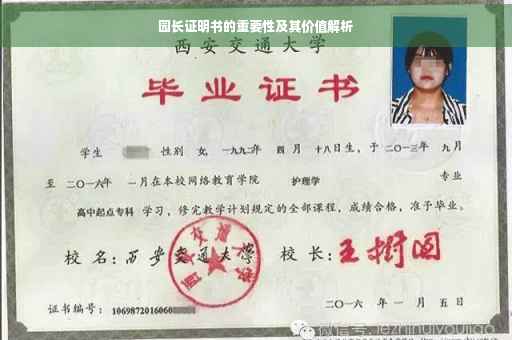 园长证明书的重要性及其价值解析
西安交通大学
毕业证书
学生 性别 女，一九九二年 四 月 十八日生，于 二〇一三年 九月
至 二〇一六年 一月在本校网络教育学院 护理学 专业
高中起点专科 学习，修完教学计划规定的全部课程，成绩合格，准予毕业。
校 名：西安交通大学 校 长：王树国
证书编号：1069872016060
二〇一六 年 一 月 五 日
微信号: jiezhihuiyoujiao